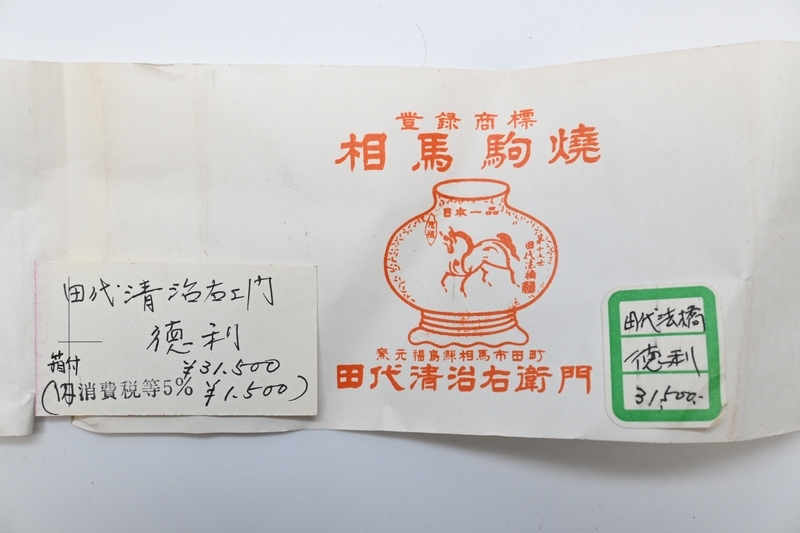 登録商標
相馬駒焼
日本一品
元祖
第十五世
田代法橋
窯元福島縣相馬市田町
田代清治右衛門
田代清治右エ門
徳利
箱付 ¥31.500
(内消費税等5% ¥1.500)
田代法橋
徳利
31,500.-